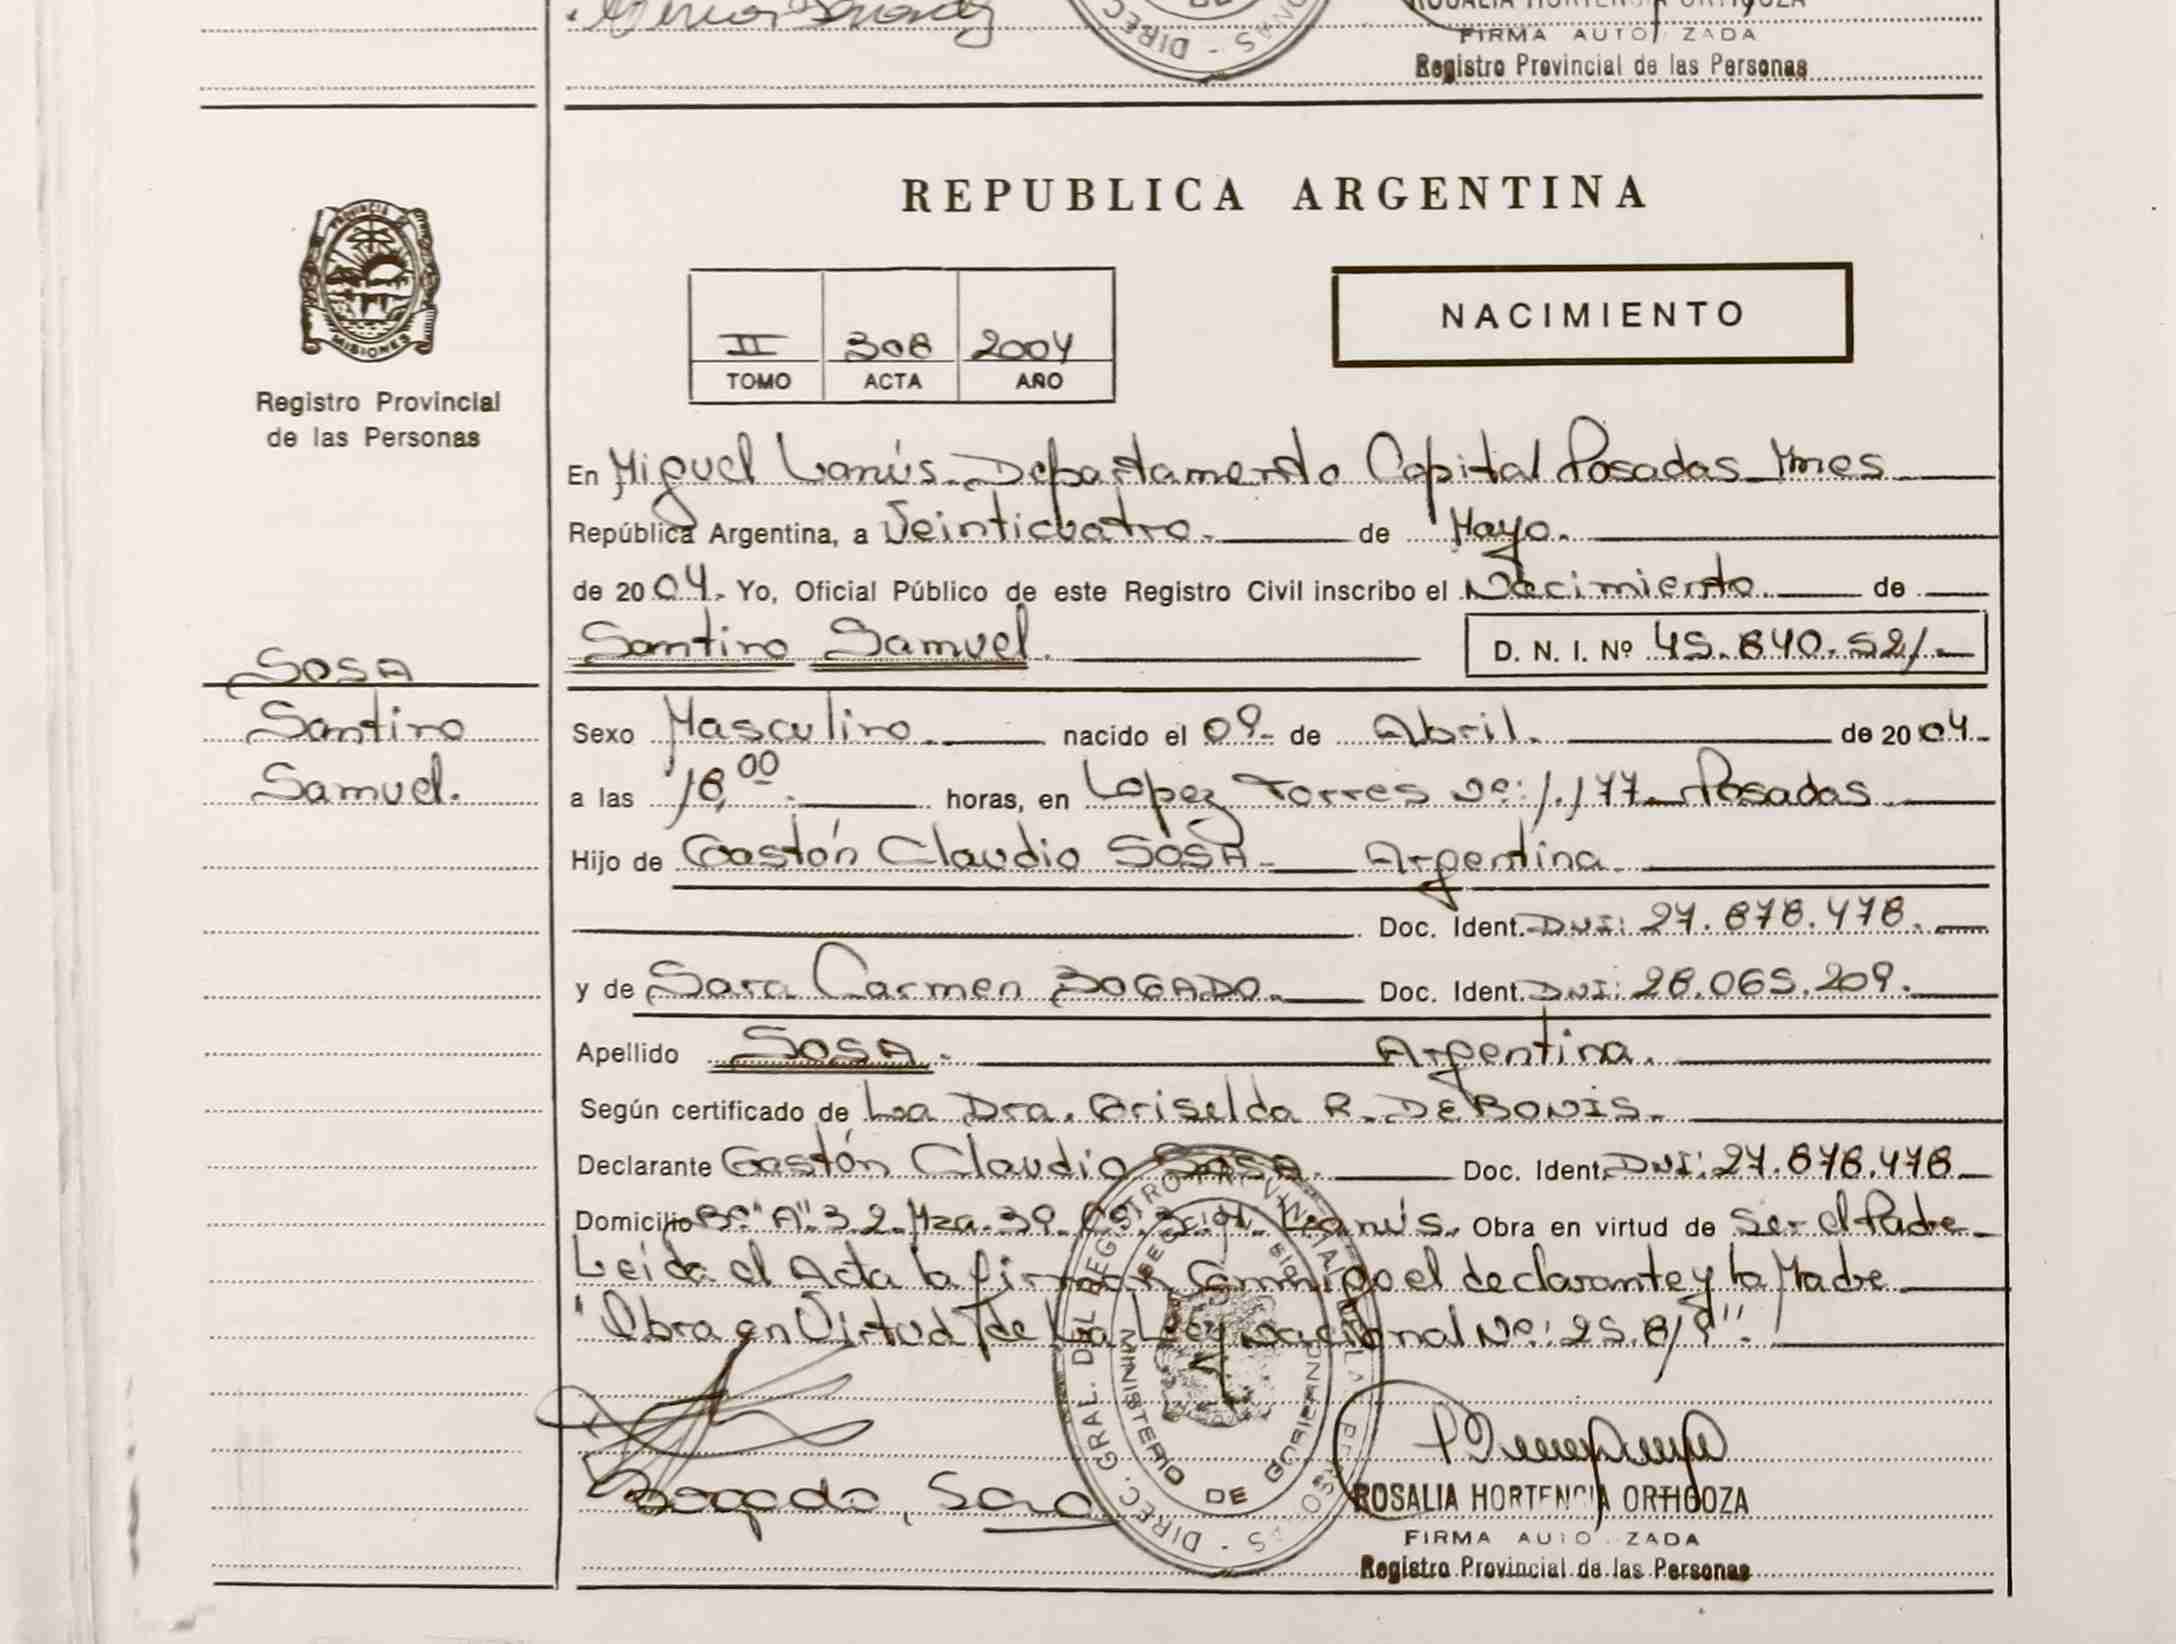 FIRMA AUTO ZADA
Registro Provincial de las Personas
REPUBLICA ARGENTINA
PROVINCIA DE
MISIONES
Registro Provincial
de las Personas
II 308 2004
TOMO ACTA AÑO
NACIMIENTO
En Miguel Lanús Departamento Capital Posadas Mnes
República Argentina, a Veinticuatro.- de Mayo.
de 2004.- Yo, Oficial Público de este Registro Civil inscribo el Nacimiento de
Santino Samuel. D. N. I. Nº 45.840.521.-
SOSA
Santino
Samuel.
Sexo Masculino. nacido el 09- de Abril. de 2004.-
a las 18,00. horas, en Lopez Torres Nº: 1.177.- Posadas
Hijo de Gastón Claudio SOSA- Argentina.
Doc. Ident. DNI: 27.878.478.
y de Sara Carmen BOGADO. Doc. Ident. DNI: 28.065.209.
Apellido SOSA. Argentina.
Según certificado de La Dra. Griselda R. DE BONIS.
Declarante Gastón Claudio SOSA. Doc. Ident. DNI: 27.878.478
Domicilio Bº "A" 3.2. Mza. 39. Lanús. Obra en virtud de Ser el Padre
Leida el Acta la firman Conmigo el declarante y la Madre
"Obra en Virtud de La Ley Nacional Nº: 25.819".
Bogado, Sara
DIREC. GRAL. DEL REGISTRO PROVINCIAL DE LAS PERSONAS
MINISTERIO DE GOBIERNO
ROSALIA HORTENCIA ORTIGOZA
FIRMA AUTO ZADA
Registro Provincial de las Personas